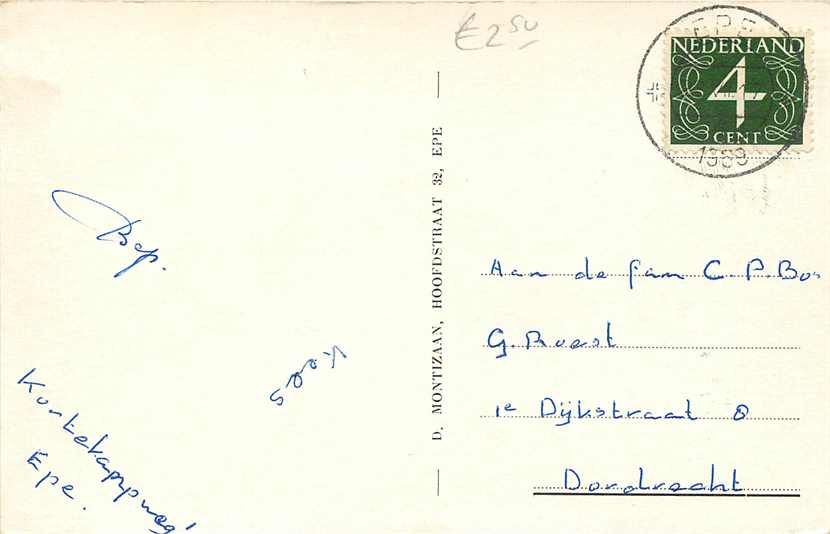 £ 2 50
EPE
NEDERLAND
4
CENT
Bep.
Koos
Kortekampweg
Epe.
D. MONTIZAAN, HOOFDSTRAAT 32, EPE
Aan de fam C.P. Bos
G. Roest
1e Dijkstraat 8
Dordrecht